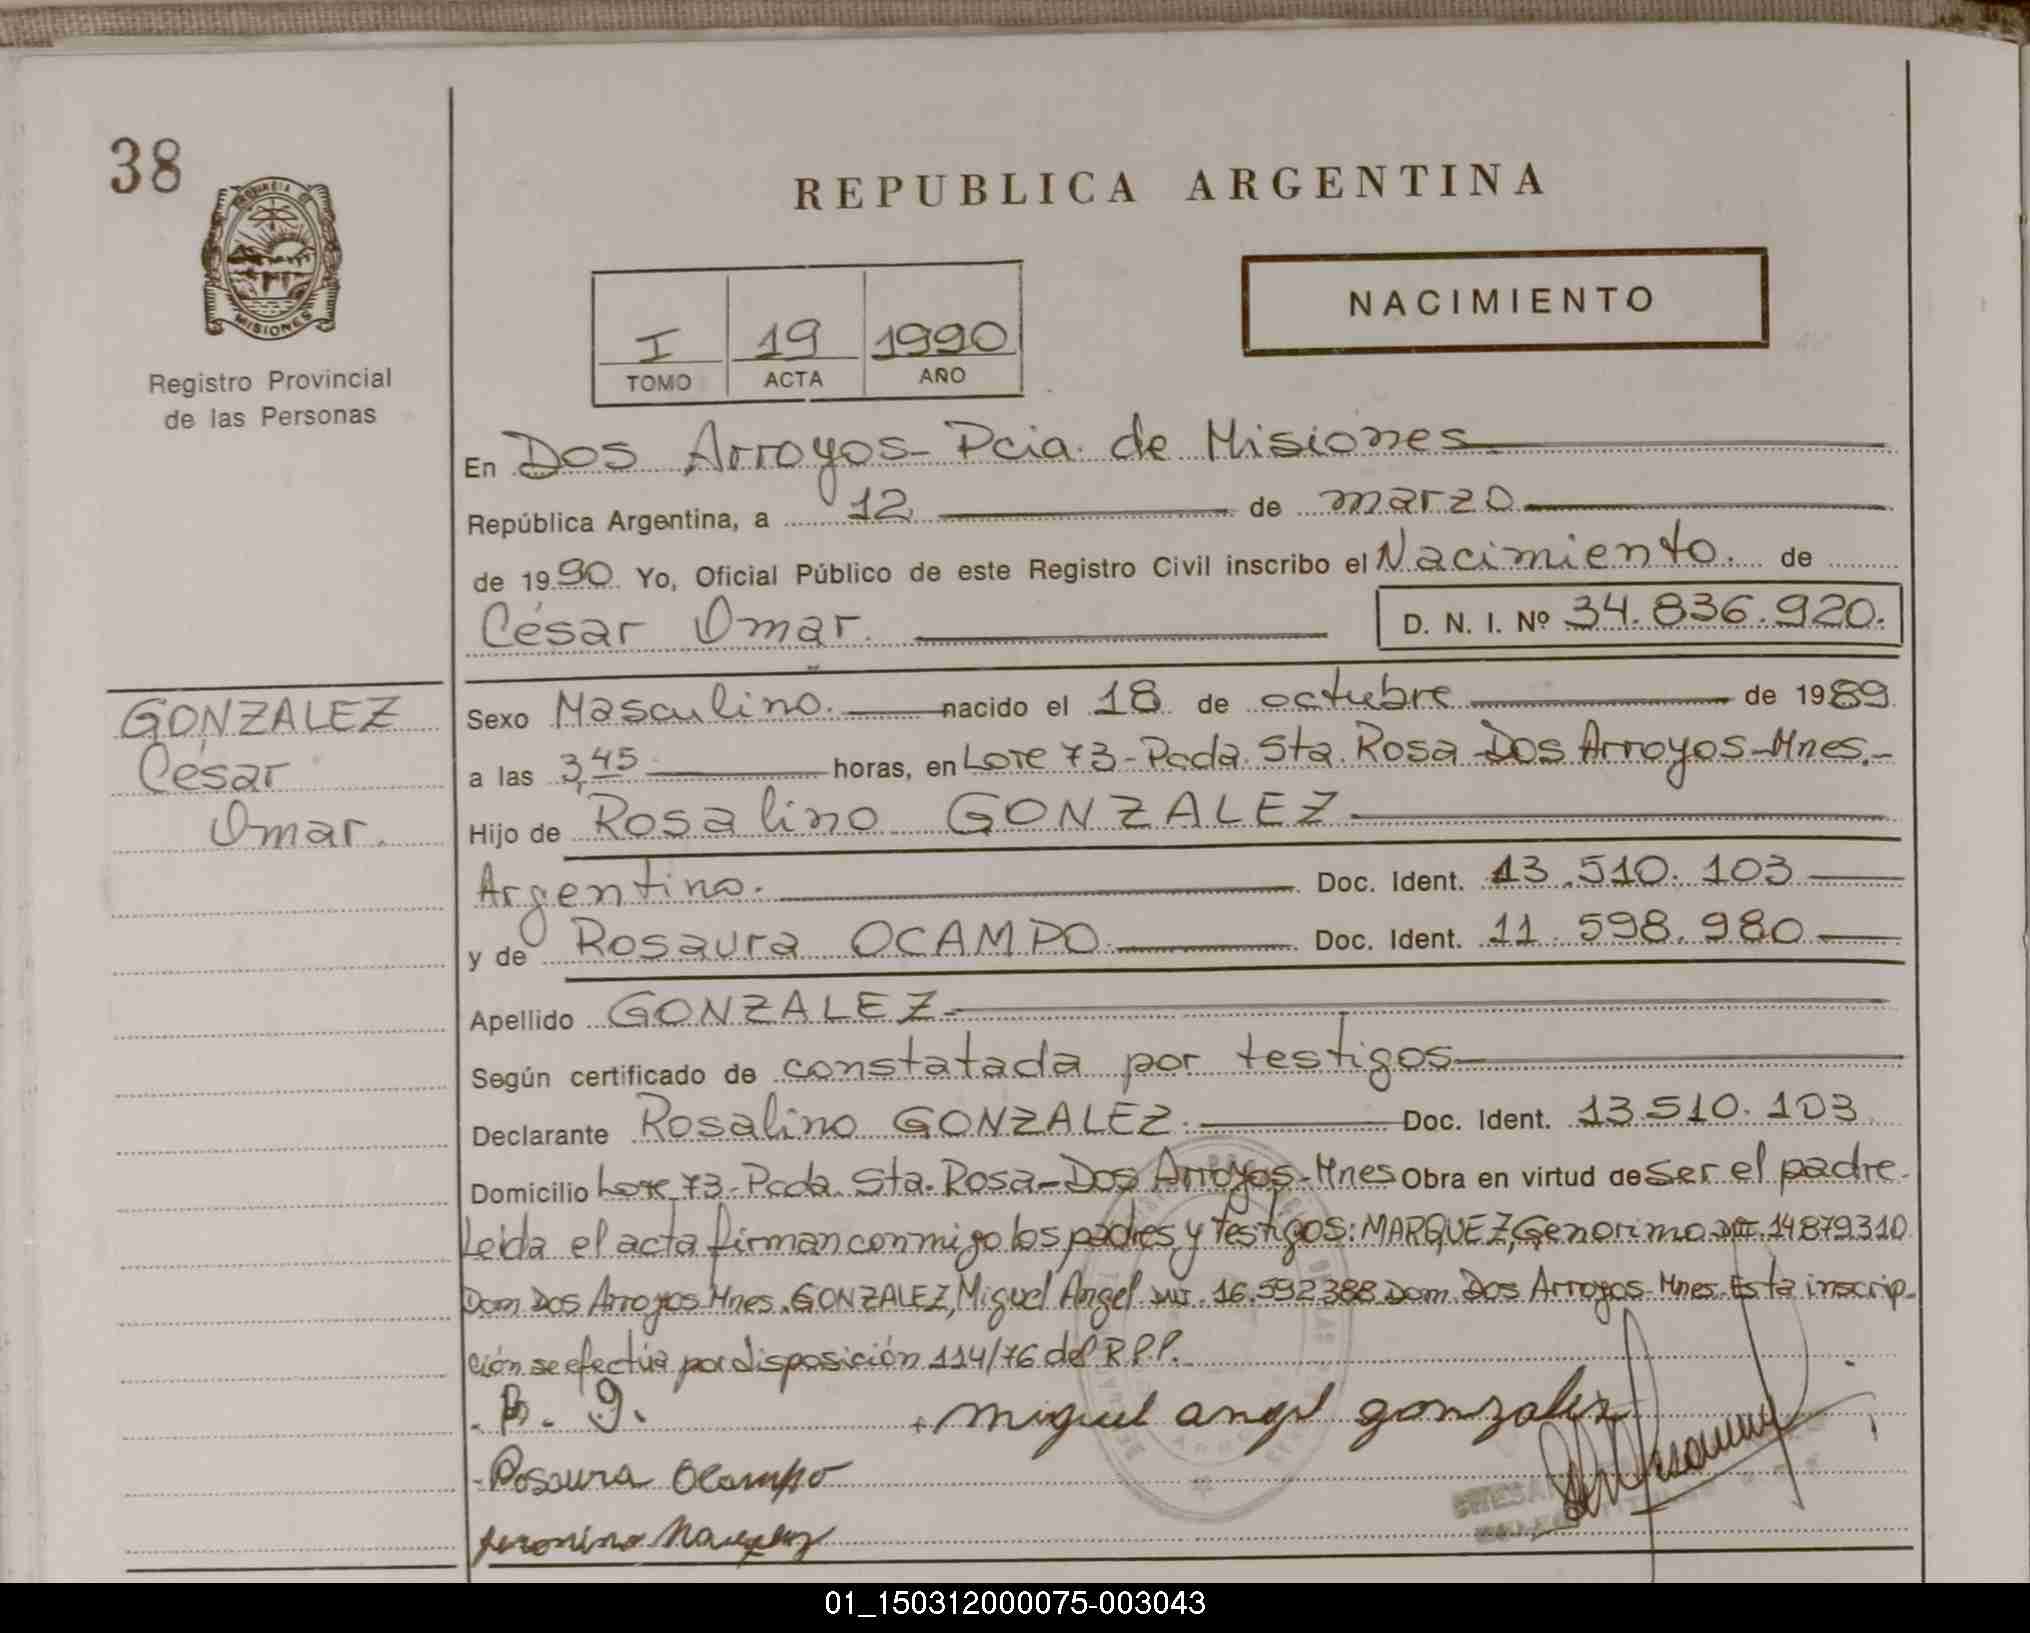 38
PROVINCIA DE
MISIONES
Registro Provincial
de las Personas
REPUBLICA ARGENTINA
NACIMIENTO
I 19 1990
TOMO ACTA AÑO
En Dos Arroyos- Pcia. de Misiones
República Argentina, a 12 de marzo
de 1990 Yo, Oficial Público de este Registro Civil inscribo el Nacimiento. de
César Omar. D. N. I. Nº 34.836.920.
GONZALEZ
César
Omar.
Sexo Masculino. nacido el 18 de octubre de 1989
a las 3,45 horas, en Lote 73-Pcda. Sta. Rosa-Dos Arroyos-Mnes.-
Hijo de Rosalino GONZALEZ
Argentino. Doc. Ident. 13.510.103
y de Rosaura OCAMPO. Doc. Ident. 11.598.980
Apellido GONZALEZ.
Según certificado de constatada por testigos
Declarante Rosalino GONZALEZ. Doc. Ident. 13.510.103
Domicilio Lote 73-Pcda. Sta. Rosa-Dos Arroyos-Mnes Obra en virtud de ser el padre.
Leída el acta firman conmigo los padres y testigos: MARQUEZ, Genorimo 14879310
Dom Dos Arroyos Mnes. GONZALEZ, Miguel Angel 16.592388 Dom. Dos Arroyos-Mnes. Esta inscrip-
ción se efectúa por disposición 114/76 del R.P.P.
R. g. miguel angel gonzalez
Rosaura Ocampo
01_150312000075-003043